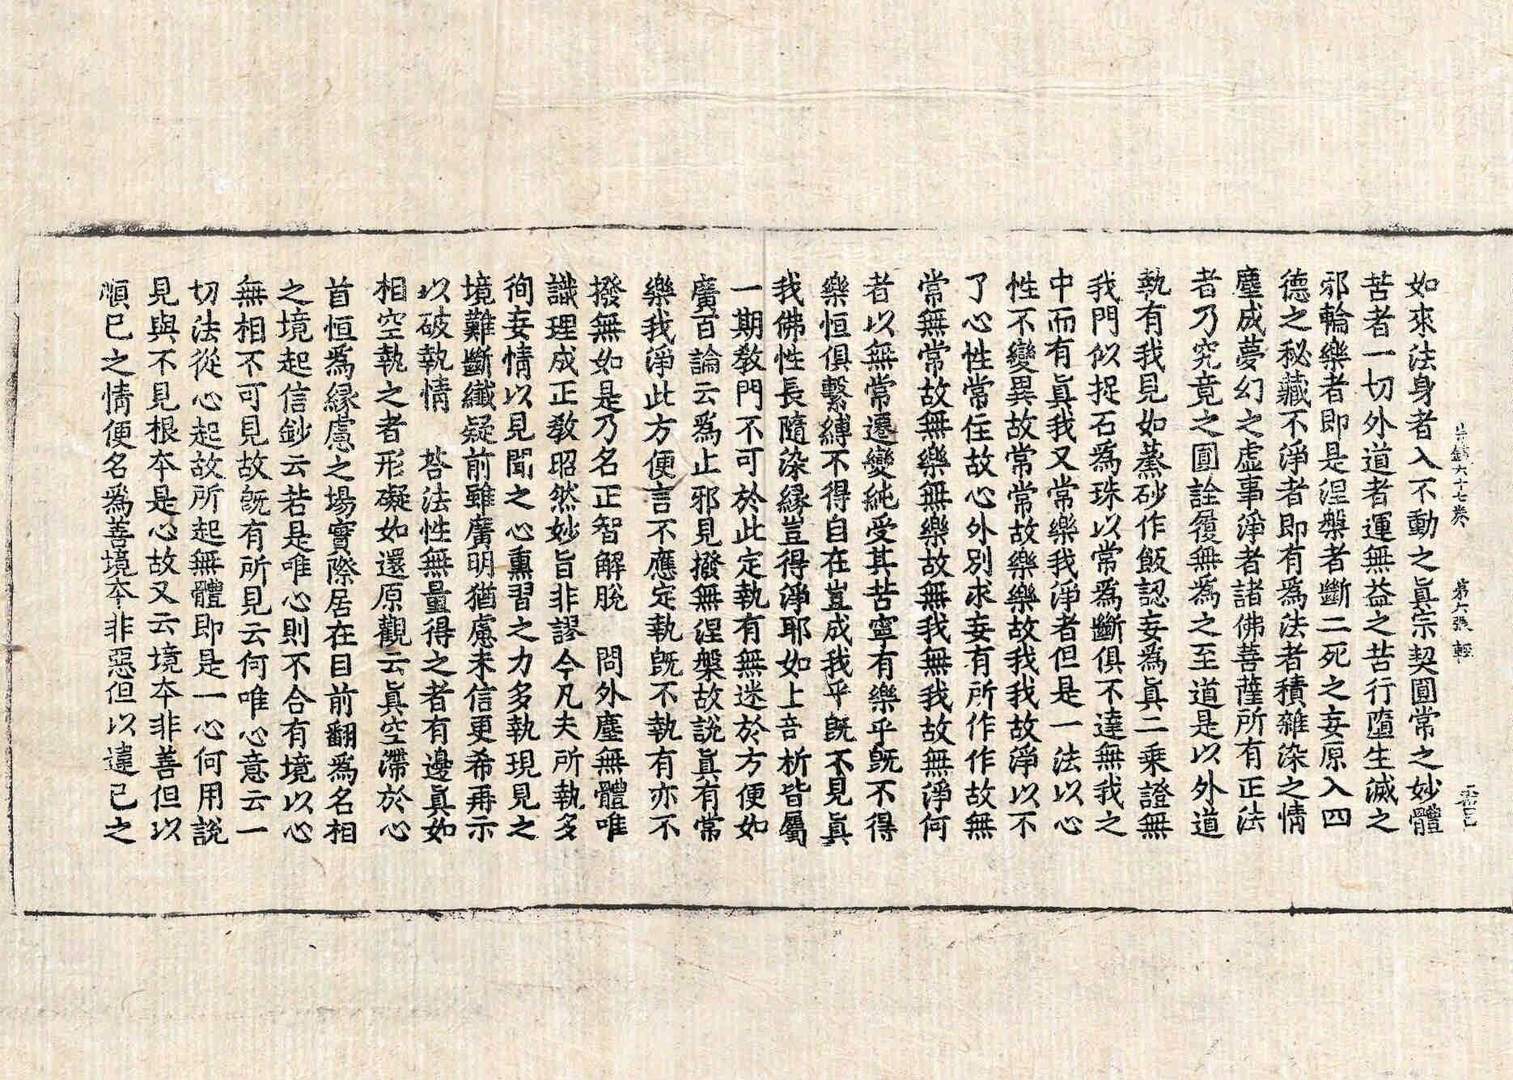 宗鏡六十七卷 第六張 輕
如來法身者入不動之眞宗契圓常之妙體
苦者一切外道者運無益之苦行墮生滅之
邪輪樂者即是涅槃者斷二死之妄原入四
德之秘藏不淨者即有爲法者積雜染之情
塵成夢幻之虛事淨者諸佛菩薩所有正法
者乃究竟之圓詮履無爲之至道是以外道
執有我見如蒸砂作飯認妄爲眞二乘證無
我門似捉石爲珠以常爲斷俱不達無我之
中而有眞我又常樂我淨者但是一法以心
性不變異故常常故樂樂故我我故淨以不
了心性常住故心外別求妄有所作作故無
常無常故無樂無樂故無我無我故無淨何
者以無常遷變純受其苦寧有樂乎旣不得
樂恒俱繫縛不得自在豈成我乎旣不見眞
我佛性長隨染緣豈得淨耶如上剖析皆屬
一期敎門不可於此定執有無迷於方便如
廣百論云爲止邪見撥無涅槃故說眞有常
樂我淨此方便言不應定執旣不執有亦不
撥無如是乃名正智解脫 問外塵無體唯
識理成正敎昭然妙旨非謬今凡夫所執多
徇妄情以見聞之心熏習之力多執現見之
境難斷纖疑前雖廣明猶慮未信更希再示
以破執情 荅法性無量得之者有邊眞如
相空執之者形礙如還原觀云眞空滯於心
首恒爲緣慮之場實際居在目前翻爲名相
之境起信鈔云若是唯心則不合有境以心
無相不可見故旣有所見云何唯心意云一
切法從心起故所起無體即是一心何用說
見與不見根夲是心故又云境夲非善但以
順已之情便名爲善境夲非惡但以違已之